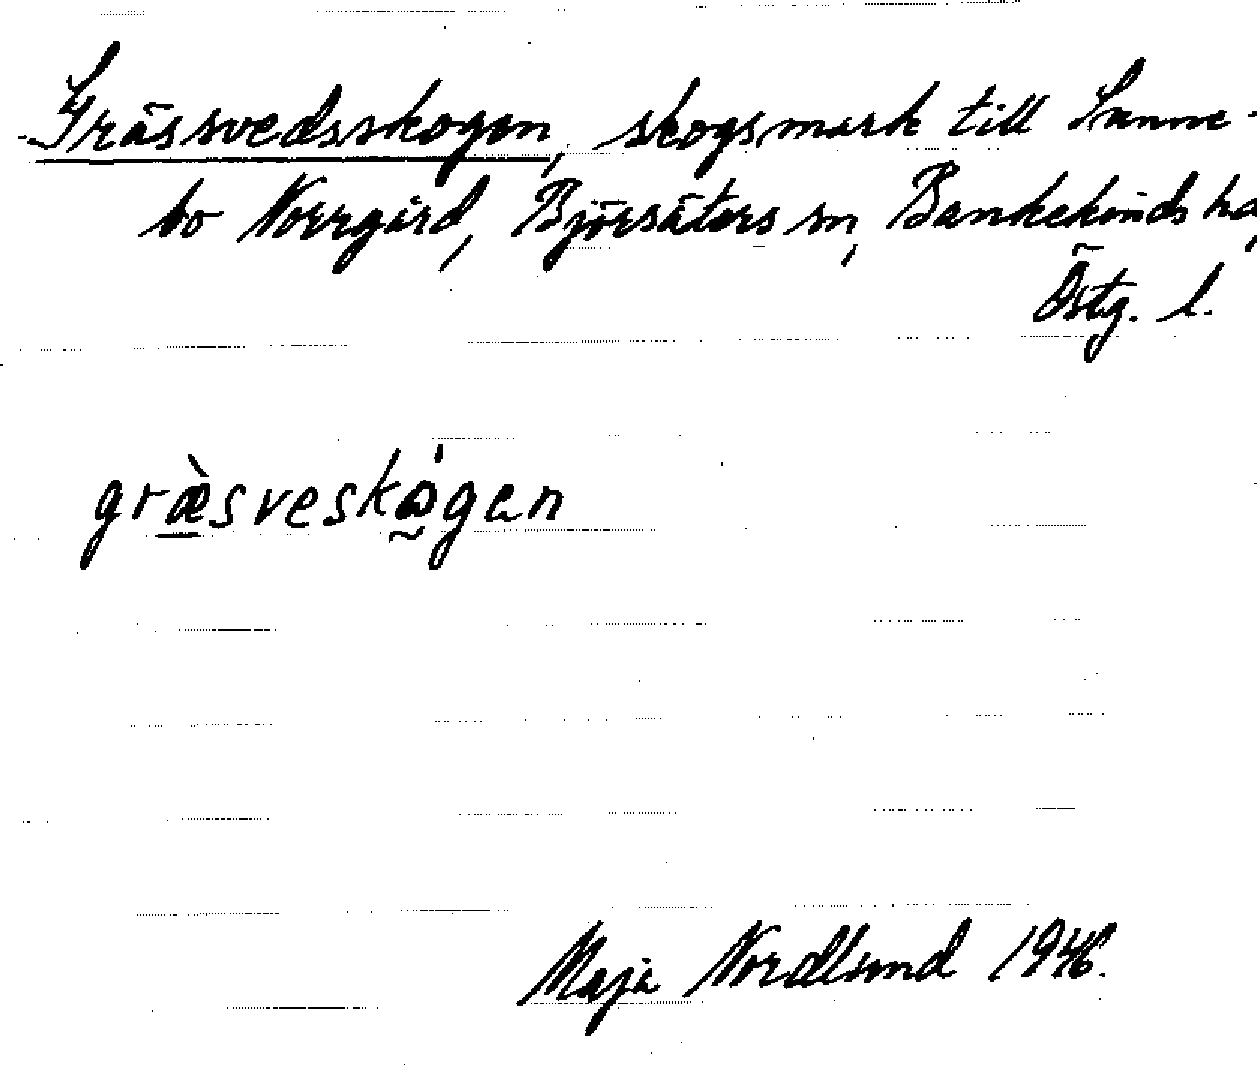 Grässvedsskogen, skogsmark till Sanne-
bo Norrgård, Björsäters sn, Bankekinds hd,
Östg. l.
græ̀sveskɷ̀gen
Maja Nordlund 1946.